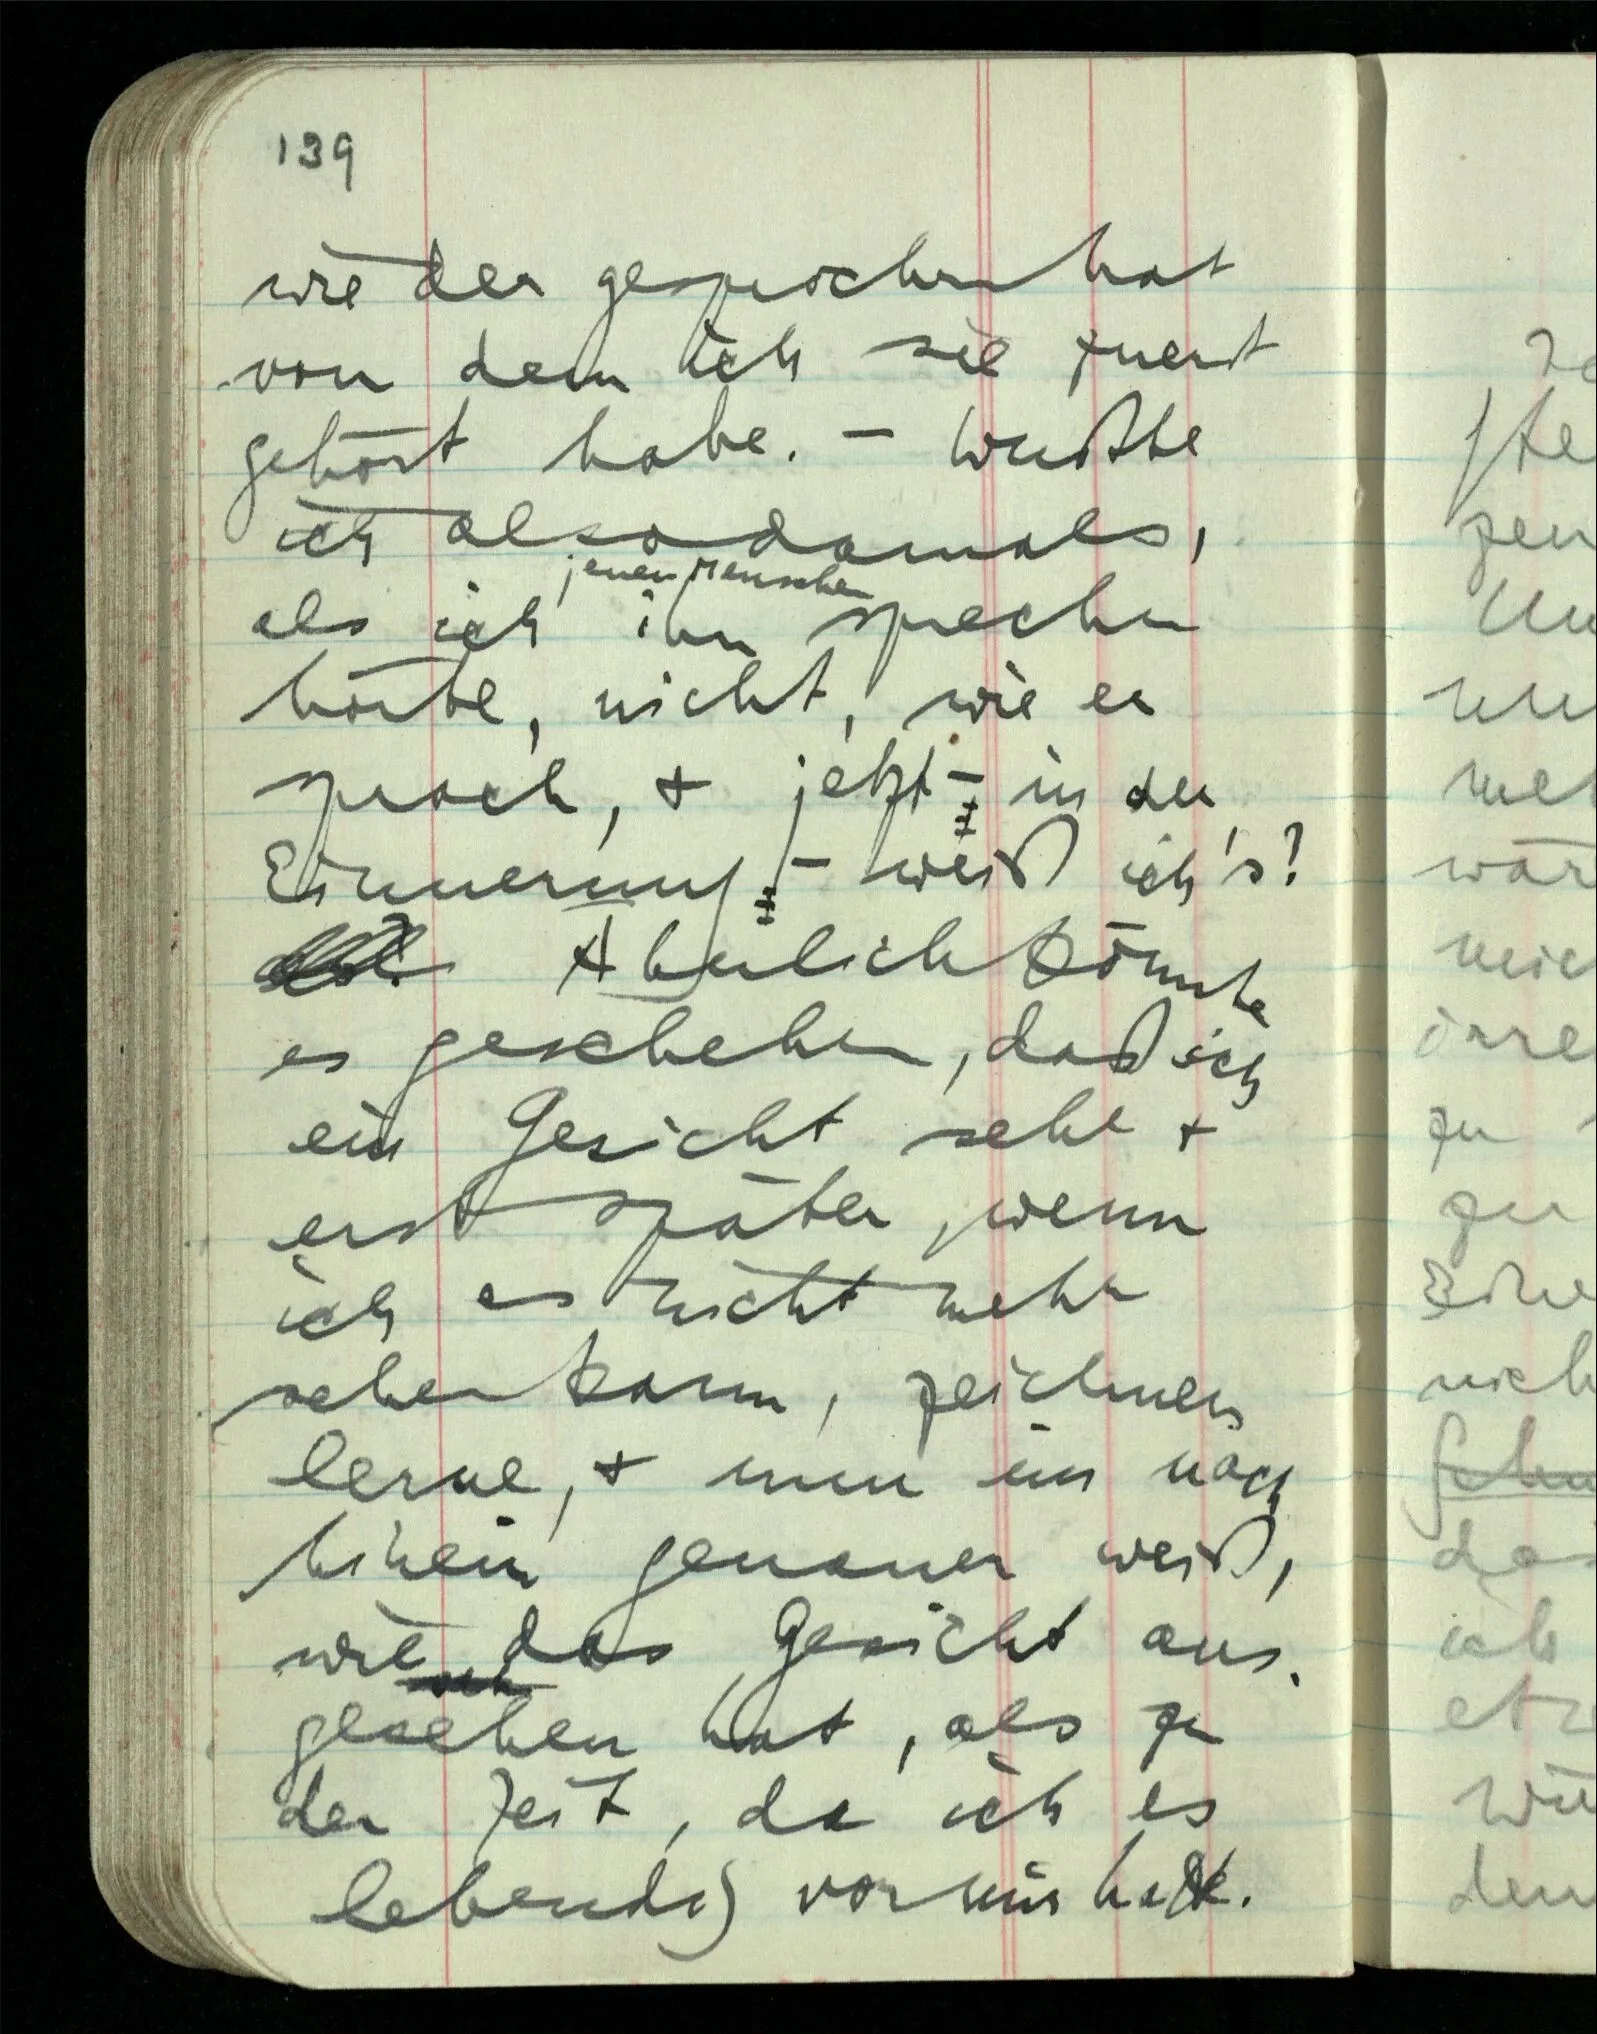 139
wie der gesprochen hat
von dem ich sie zuerst
gehört habe. – Wußte
ich also damals,
jenen Menschen
als ich ihn sprechen
hörte, nicht, wie er
sprach, & jetzt – in der
Erinnerung – weiß ich's?
Ähnlich könnte
es geschehen, daß ich
ein Gesicht sehe &
erst später, wenn
ich es nicht mehr
sehen kann, zeichnen
lerne, & nun im nach
hinein genauer weiß,
wie das Gesicht aus-
gesehen hat, als zu
der Zeit, da ich es
lebendig vor mir hatte.